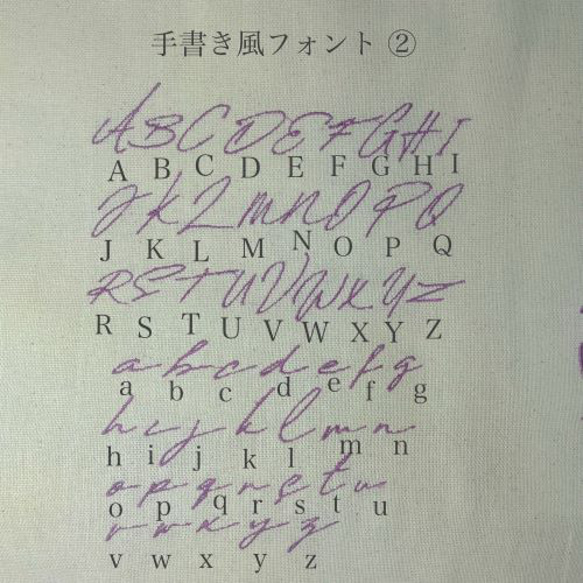 手書き風フォント ②
A B C D E F G H I
A B C D E F G H I
J K L M N O P Q
J K L M N O P Q
R S T U V W X Y Z
R S T U V W X Y Z
a b c d e f g
a b c d e f g
h i j k l m n
h i j k l m n
o p q r s t u
o p q r s t u
v w x y z
v w x y z